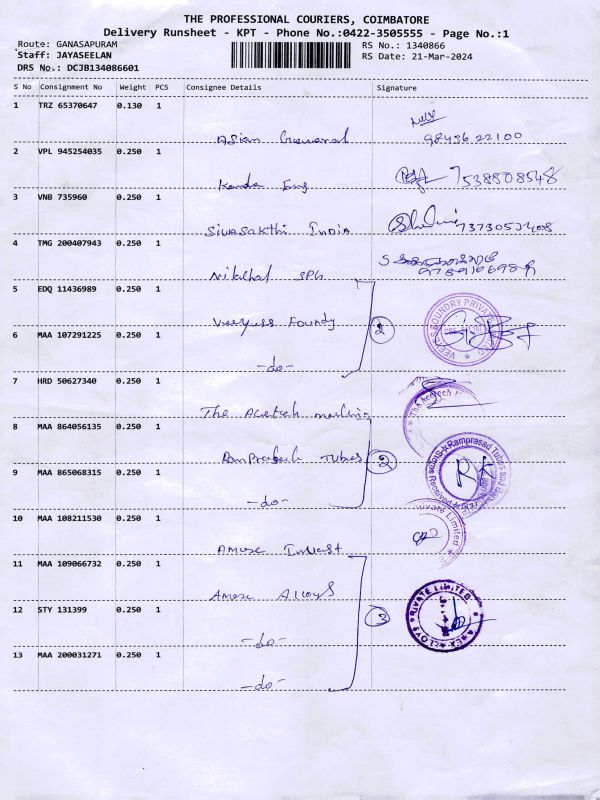 THE PROFESSIONAL COURIERS, COIMBATORE
Delivery Runsheet - KPT - Phone No.:0422-3505555 - Page No.:1
Route: GANASAPURAM
RS No.: 1340866
Staff: JAYASEELAN
RS Date: 21-Mar-2024
DRS No.: DCJB134086601
S No Consignment No Weight PCS Consignee Details Signature
1 TRZ 65370647 0.130 1
Asian General 9843622100
2 VPL 945254035 0.250 1
Kanda Eng 7538808548
3 VNB 735960 0.250 1
Sivasakthi India 
4 TMG 200407943 0.250 1
Nikhal SPG
5 EDQ 11436989 0.250 1
Veeyess Foundy 2 FOUNDRY PRIVATE LIMITED
6 MAA 107291225 0.250 1
-do-
7 HRD 50627340 0.250 1
The Acetech machine The Acetech
8 MAA 864056135 0.250 1
Ramprasad Tubes 2 Ramprasad Tubes and
9 MAA 865068315 0.250 1
-do- Stores Received
10 MAA 108211530 0.250 1
Amex Private Limited
11 MAA 109066732 0.250 1
Amex Alloys PRIVATE LIMITED
12 STY 131399 0.250 1
-do- 3 AMEX ALLOYS
13 MAA 200031271 0.250 1
-do-